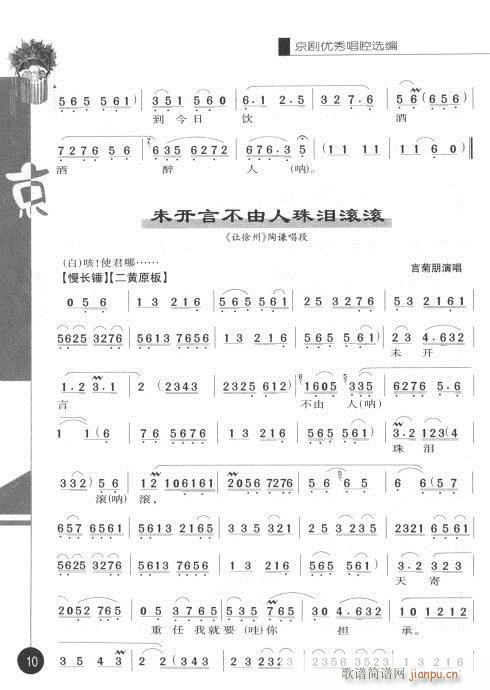 京剧优秀唱腔选编
565 561) | 351 560 | 6·1 2·5 | 327·6 | 56 (656)
到今日 饮 酒
7276 56 | 635 6272 | 076·3 5 | (11 11 | 116 0) ‖
酒 醉 人 (呐)。
京
未开言不由人珠泪滚滚
《让徐州》陶谦唱段
(白)咳!使君哪……
言菊朋演唱
【慢长锤】【二黄原板】
056 | 13 216 | 565 561 | 25 3276 | 13 216
5625 3276 | 5613 5765 | 13 216 | 565 561) | 23 4·632
未 开
1·2 3·1 | 2 (2343 | 2325 612) | 1605 335 | 6276 5·6
言 不由 人(呐)
1 1 (6 | 765 6123 | 76 5676 | 5676 5) | 3·2 123(4
珠 泪
332) 56 | 12 106161 | 2056 7276 | 56 65 | 5 (356
滚(呐) 滚,
657 6561 | 5613 2165 | 335 335 | 235 235 | 2321 6561
5625 3276 | 5613 5765 | 13 216 | 565 561) | 3·2 323
天 寄
2052 765 | 05 3765 | 535 765 | 10 1210 | 0656 1
重 任 我就要 (哇)你 担 承。
10
歌谱简谱网
jianpu.cn